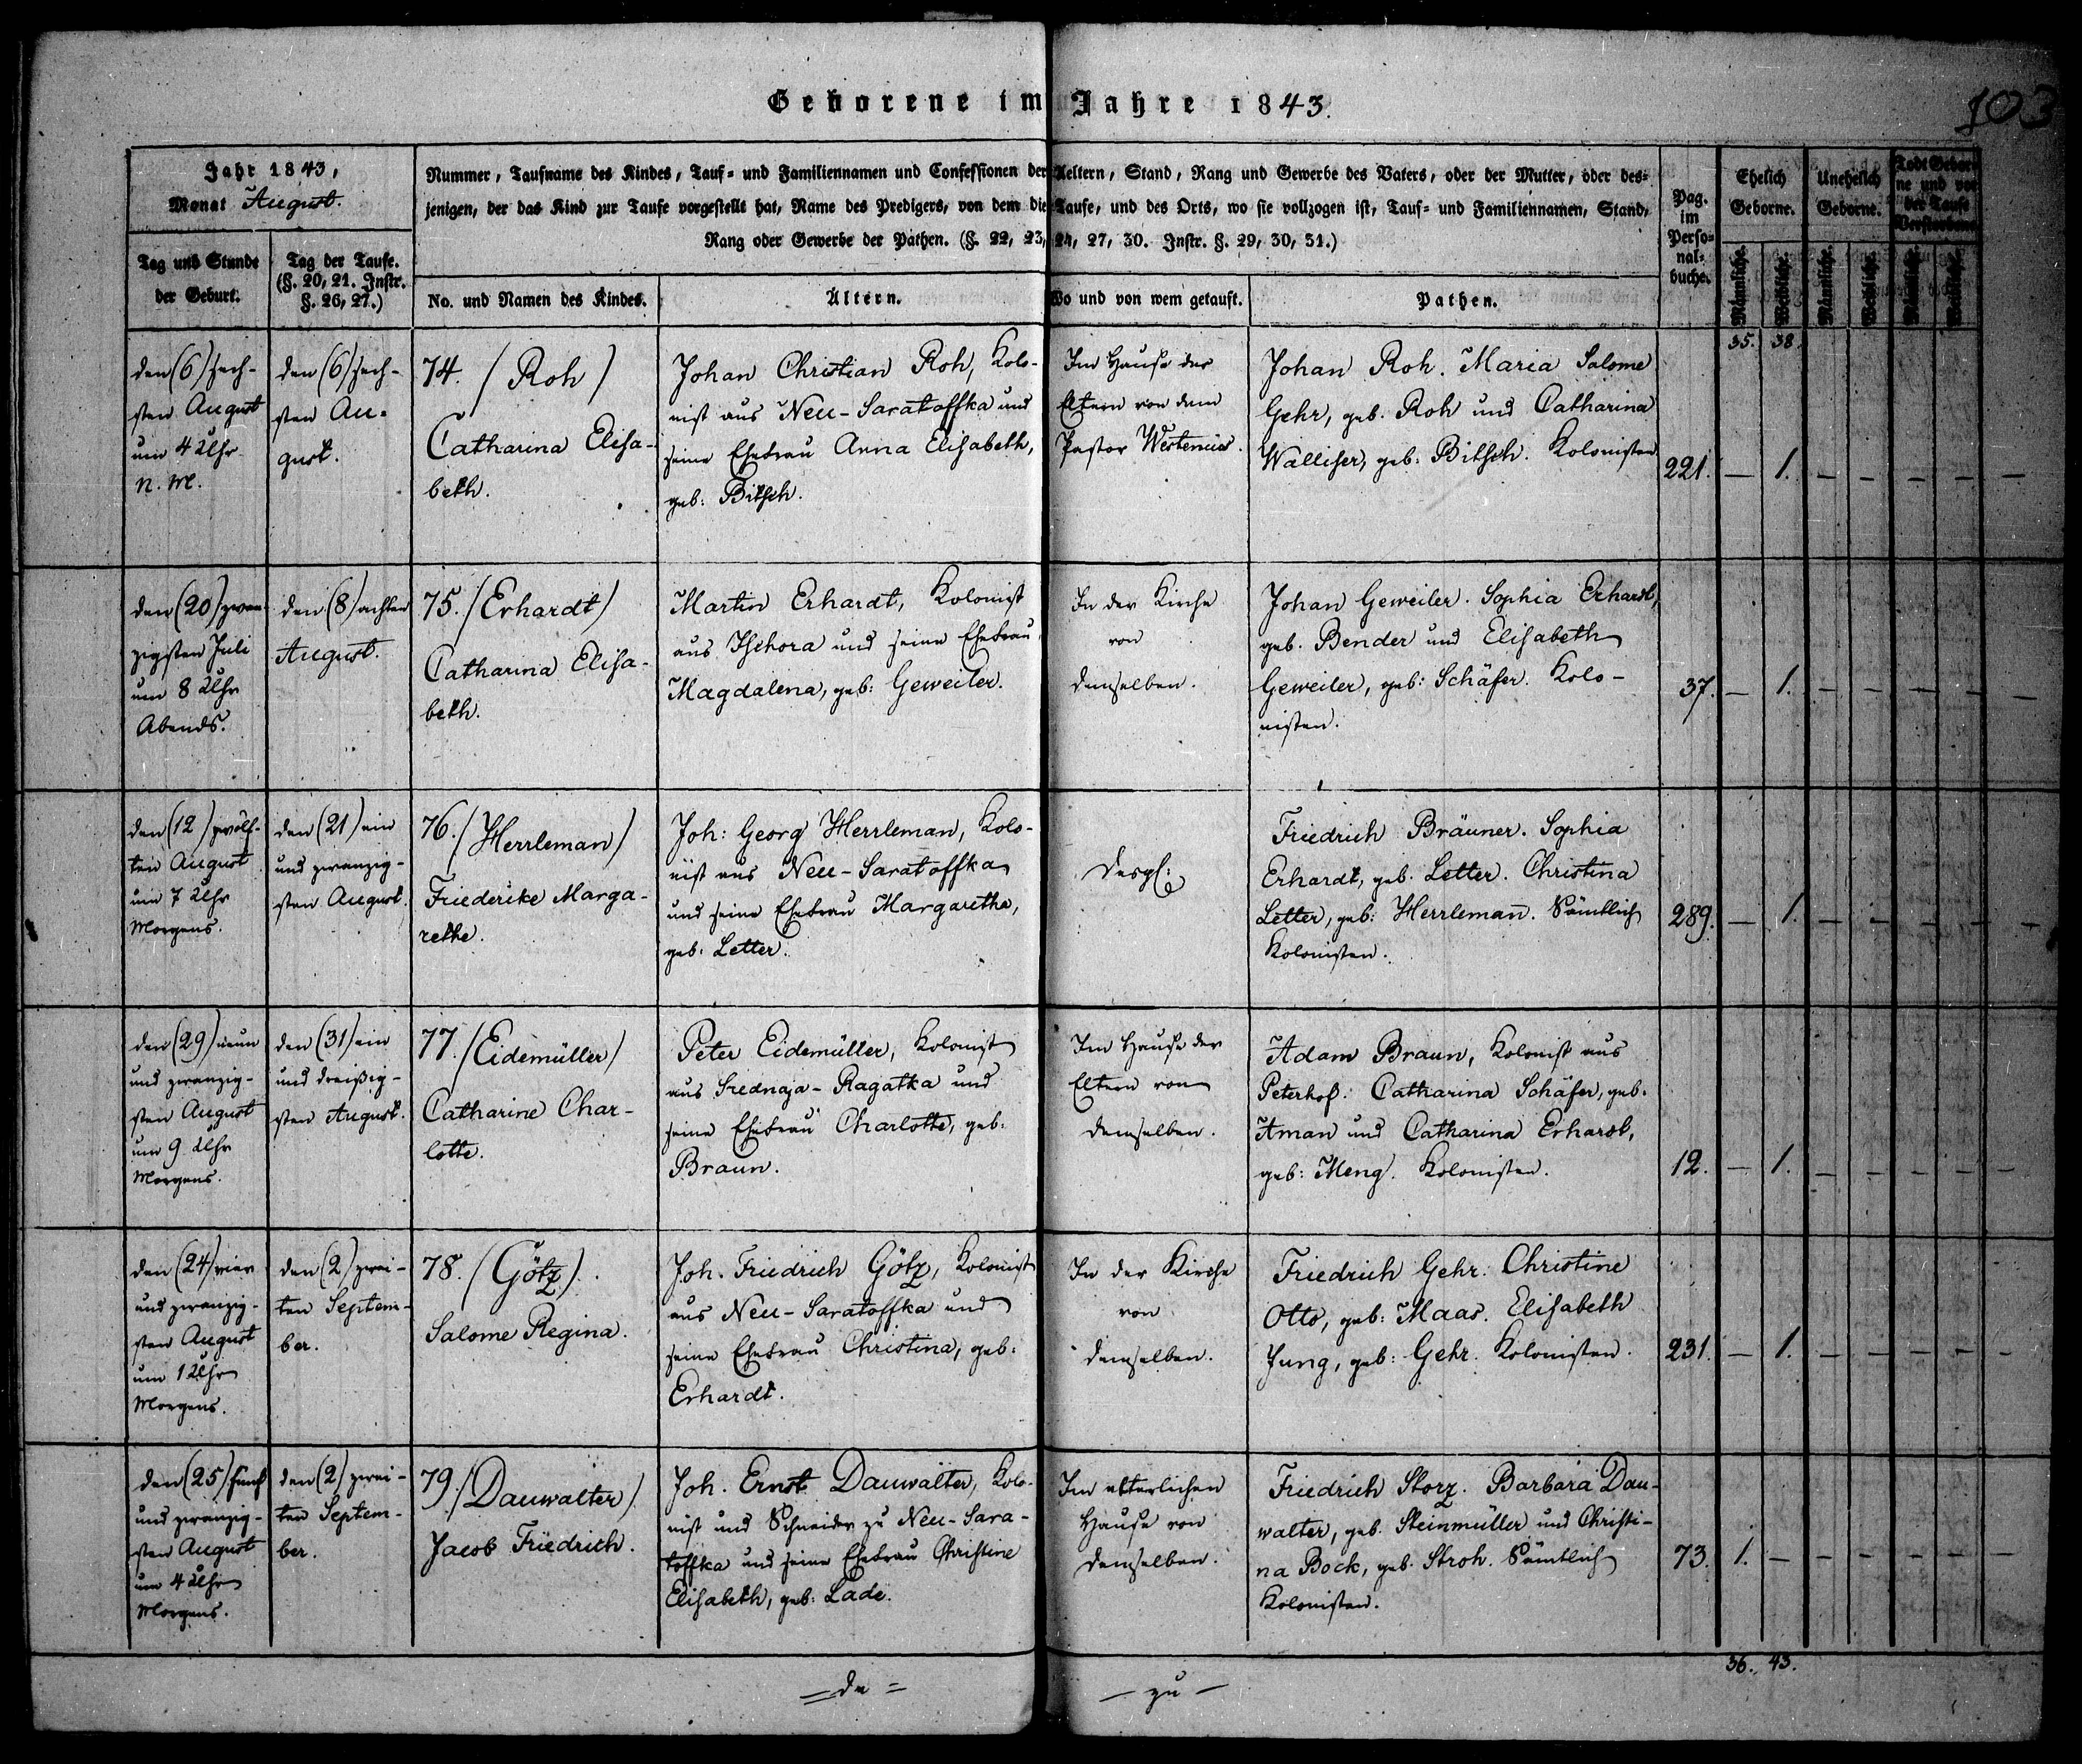 Geborene im Jahre 1843.
103
Jahr 1843,
Monat August.
Tag und Stunde
der Geburt.
Tag der Taufe.
(§. 20, 21. Instr.
§. 26, 27.)
Nummer, Taufname des Kindes, Tauf- und Familiennamen und Confessionen der Aeltern, Stand, Rang und Gewerbe des Vaters, oder der Mutter, oder des-
jenigen, der das Kind zur Taufe vorgestellt hat, Name des Predigers, von dem die Taufe, und des Orts, wo sie vollzogen ist, Tauf- und Familiennamen, Stand,
Rang oder Gewerbe der Pathen. (§. 22, 23, 24, 27, 30. Instr. §. 29, 30, 31.)
No. und Namen des Kindes.
Ältern.
Wo und von wem getauft.
Pathen.
Pag.
im
Perso-
nal-
buche.
Ehelich
Geborne.
Unehelich
Geborne.
Todt Gebor-
ne und vor
der Taufe
Verstorbene
Männliche. Weibliche. Männliche. Weibliche. Männliche. Weibliche.
35. 38.
den (6) sech-
sten August
um 4 Uhr
N. M.
den (6) sech-
sten Au-
gust.
74. / Roh /
Catharina Elisa-
beth.
Johan Christian Roh, Kolo-
nist aus Neu-Saratoffka und
seine Ehefrau Anna Elisabeth,
geb: Bitsch.
Im Hause der
Eltern von dem
Pastor Westenius.
Johan Roh. Maria Salome
Gehr, geb. Roh und Catharina
Walliser, geb: Bitsch. Kolonisten
221. — 1. — — — — —
den (20) zwan-
zigsten Juli
um 8 Uhr
Abends.
den (8) achten
August.
75. / Erhardt /
Catharina Elisa-
beth.
Martin Erhardt, Kolonist
aus Ischora und seine Ehefrau
Magdalena, geb: Geweiler.
In der Kirche
von
demselben.
Johan Geweiler. Sophia Erhardt,
geb. Bender und Elisabeth
Geweiler, geb: Schäfer. Kolo-
nisten.
37. — 1. — — — — —
den (12) zwölf-
ten August
um 7 Uhr
Morgens.
den (21) ein
und zwanzig-
sten August.
76. / Herrleman /
Friederike Marga-
rethe.
Joh: Georg Herrleman, Kolo-
nist aus Neu-Saratoffka
und seine Ehefrau Margaretha,
geb: Letter.
Desgl:
Friedrich Bräuner. Sophia
Erhardt, geb. Letter. Christina
Letter, geb: Herrleman̄. Sämtlich
Kolonisten.
289. — 1. — — — — —
den (29) neun
und zwanzig-
sten August
um 9 Uhr
Morgens.
den (31) ein
und dreißig-
sten August.
77. / Eidemüller /
Catharine Char-
lotte.
Peter Eidemüller, Kolonist
aus Srednaja-Ragatka und
seine Ehefrau Charlotte, geb:
Braun.
Im Hause der
Eltern von
demselben.
Adam Braun, Kolonist aus
Peterhof. Catharina Schäfer, geb.
Aman und Catharina Erhardt,
geb: Meng. Kolonisten.
12. — 1. — — — — —
den (24) vier
und zwanzig-
sten August
um 1 Uhr
Morgens.
den (2) zwei-
ten Septem-
ber.
78. / Götz /.
Salome Regina.
Joh. Friedrich Götz, Kolonist
aus Neu-Saratoffka und
seine Ehefrau Christina, geb:
Erhardt.
In der Kirche
von
demselben.
Friedrich Gehr. Christine
Otto, geb: Maas. Elisabeth
Jung, geb: Gehr. Kolonisten.
231. — 1. — — — — —
den (25) fünf
und zwanzig-
sten August
um 4 Uhr
Morgens.
den (2) zwei-
ten Septem-
ber.
79. / Dauwalter /.
Jacob Friedrich.
Joh. Ernst Dauwalter, Kolo-
nist und Schneider zu Neu-Sara-
toffka und seine Ehefrau Christine
Elisabeth, geb: Lade.
Im elterlichen
Hause von
demselben.
Friedrich Storz. Barbara Dau-
walter, geb. Steinmüller und Christi-
na Bock, geb. Stroh. Sämtlich
Kolonisten.
73. 1. — — — — — —
36. 43.
= da =
— zu —